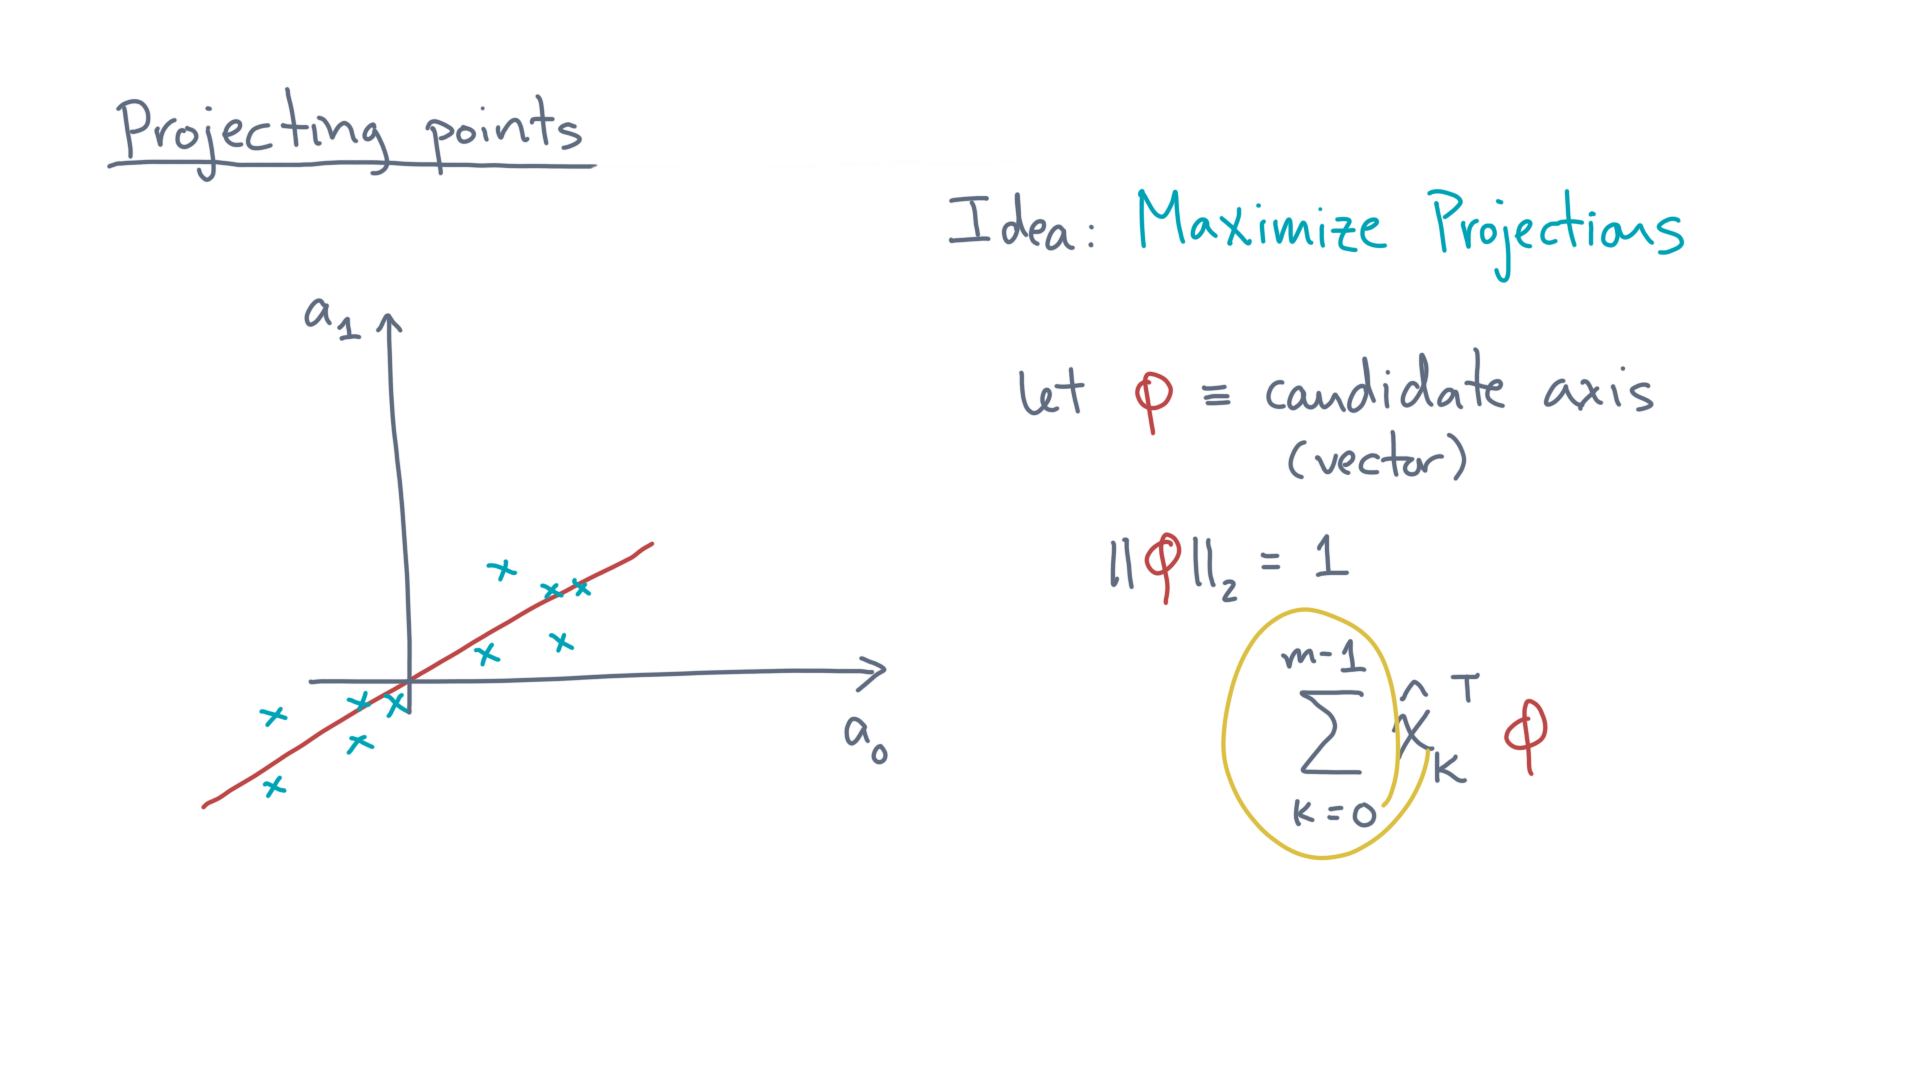 Projecting points
Idea: Maximize Projections
a₁
let φ ≡ candidate axis
(vector)
||φ||₂ = 1
m-1
∑ x̂ₖᵀ φ
k=0
a₀